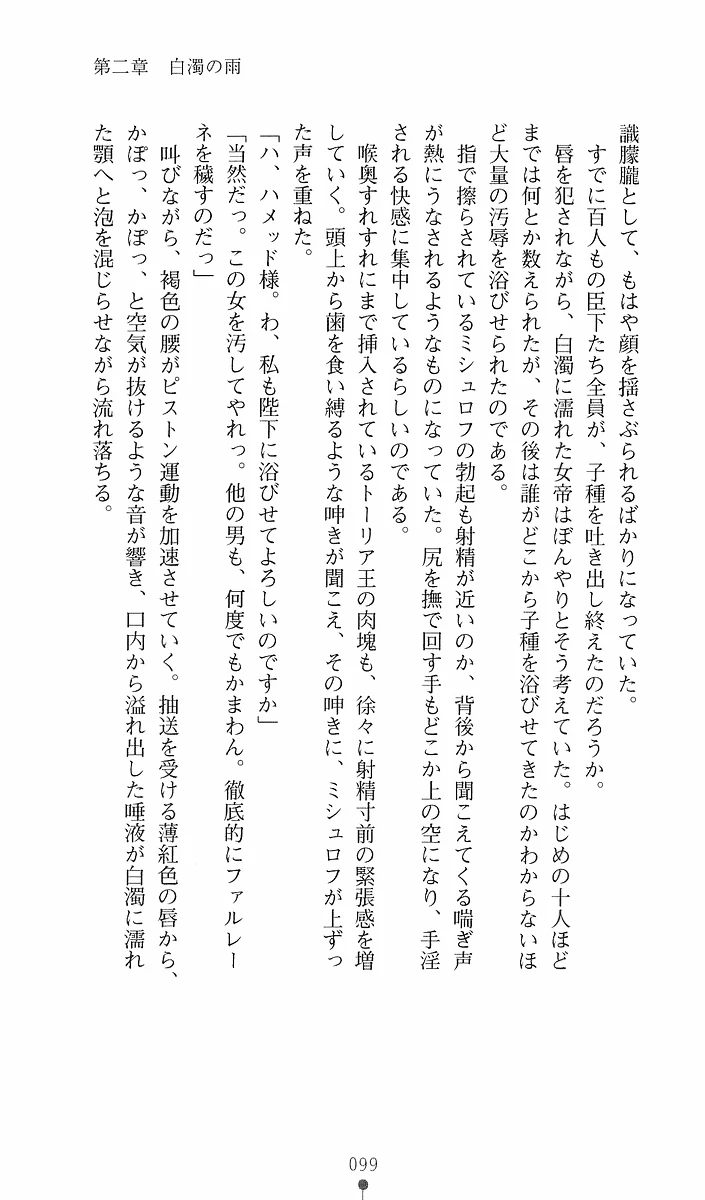 第二章　白濁の雨
識朦朧として、もはや顔を揺さぶられるばかりになっていた。
すでに百人もの臣下たち全員が、子種を吐き出し終えたのだろうか。
唇を犯されながら、白濁に濡れた女帝はぼんやりとそう考えていた。はじめの十人ほど
までは何とか数えられたが、その後は誰がどこから子種を浴びせてきたのかわからないほ
ど大量の汚辱を浴びせられたのである。
指で擦らされているミシュロフの勃起も射精が近いのか、背後から聞こえてくる喘ぎ声
が熱にうなされるようなものになっていた。尻を撫で回す手もどこか上の空になり、手淫
される快感に集中しているらしいのである。
喉奥すれすれにまで挿入されているトーリア王の肉塊も、徐々に射精寸前の緊張感を増
していく。頭上から歯を食い縛るような呻きが聞こえ、その呻きに、ミシュロフが上ずっ
た声を重ねた。
「ハ、ハメッド様。わ、私も陛下に浴びせてよろしいのですか」
「当然だっ。この女を汚してやれっ。他の男も、何度でもかまわん。徹底的にファルレー
ネを穢すのだっ」
叫びながら、褐色の腰がピストン運動を加速させていく。抽送を受ける薄紅色の唇から、
かぽっ、かぽっ、と空気が抜けるような音が響き、口内から溢れ出した唾液が白濁に濡れ
た顎へと泡を混じらせながら流れ落ちる。
099